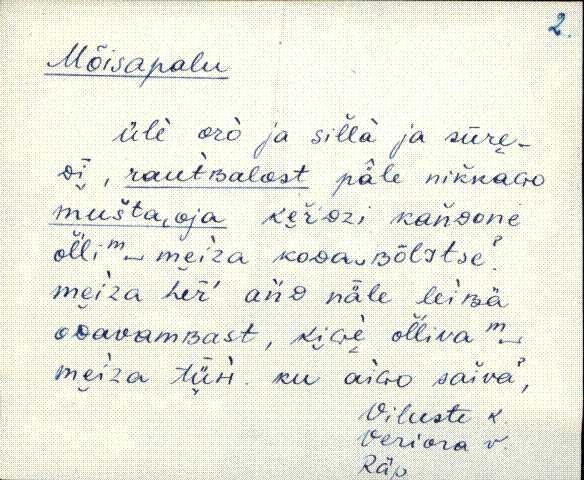 2.
Mõisapalu
ülè orò ja sillà ja sūre-
ᴅi̬, rautʙalost päle nikkaɢo
mušta, oja keŕiᴅzi kańᴅonè
olli m meiza koᴅa ʙōlitse?
meiza heŕ ańᴅ näle leiʙä
oᴅavamʙast, kiɢè olliva m
meiza tǖH. ku aiɢo saiva?,
Viluste k.
Veriora v.
Räp